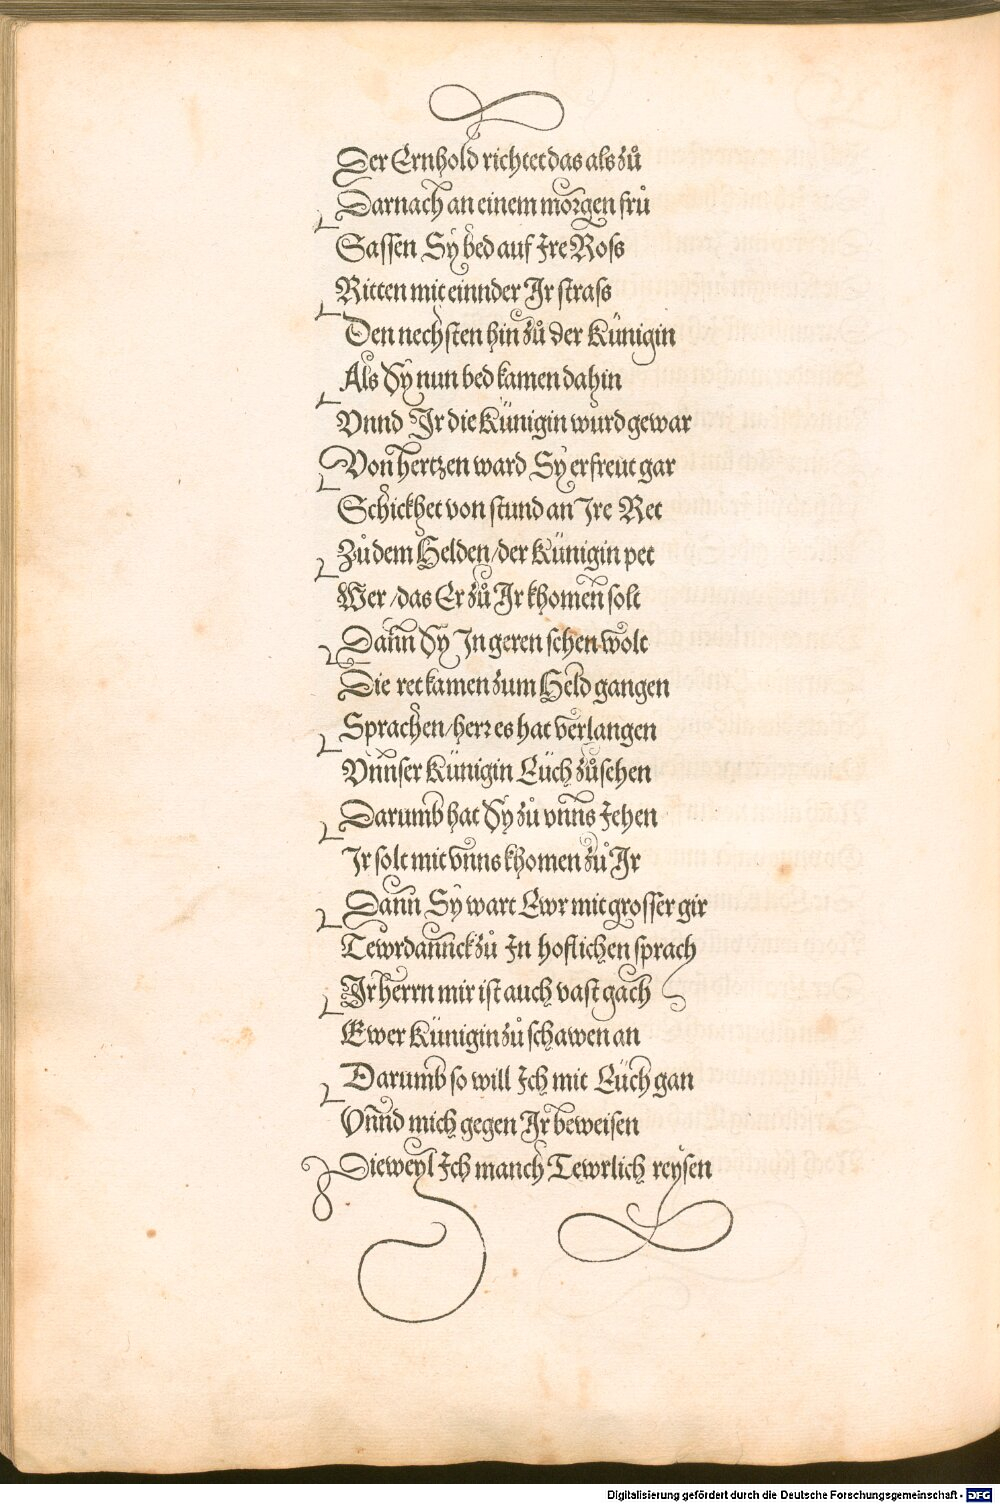 Der Ernhold richtet das als zů
Darnach an einem morgen frů
Sassen Sÿ bed auf Ire Ross
Ritten mit einnder Ir strass
Den nechsten hin zů der Künigin
Als Sÿ nun bed kamen dahin
Vnnd Ir die Künigin wurd gewar
Von hertzen ward Sÿ erfreut gar
Schickhet von stund an Ire Ret
Zů dem Helden / der Künigin pet
Wer / das Er zů Ir khomen solt
Dann Sÿ In geren sehen wolt
Die ret kamen zum Held gangen
Sprachen / herr es hat verlangen
Vnnser Künigin Eüch zůsehen
Darumb hat Sÿ zů vnns Jehen
Ir solt mit vnns khomen zů Ir
Dann Sÿ wart Ewr mit grosser gir
Tewrdannck zů In hoflichen sprach
Ir herrn mir ist auch vast gach
Ewer Künigin zů schawen an
Darumb so will Ich mit Eüch gan
Vnnd mich gegen Ir beweisen
Dieweyl Ich manch Tewrlich reÿsen
Digitalisierung gefördert durch die Deutsche Forschungsgemeinschaft - DFG